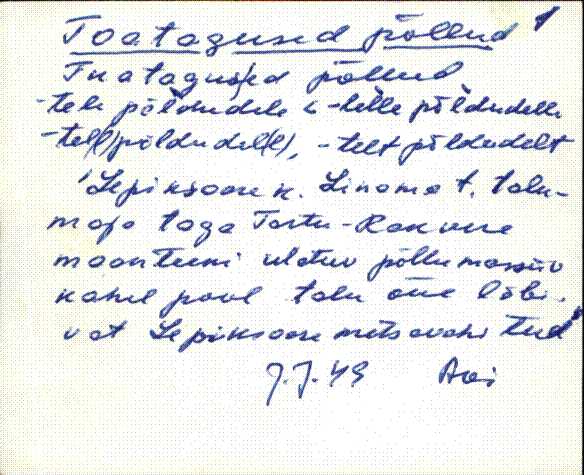 Toatagused põllud 1
Tuatagused põllud
-tele põldudele ~ -telle põldudelle
-tel(l) põldudel(l), -telt põldudelt
Lepiksaare k. Linama t. talu-
maja taga Tartu-Rakvere
maanteeni ulatuv põllumassiiv
kahel pool talu õue läbi-
vat Lepiksaare metsavahi teed
J.J. 49 Avi